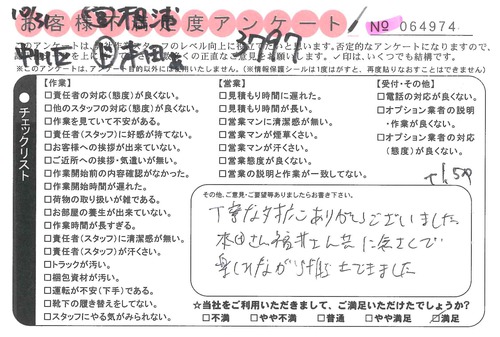 お客様満足度アンケート
No 064974
10/31
3797
※このアンケートは、アンケート目的以外には使用いたしません。(※情報保護シールは1度はがすと、再度貼りなおすことはできません)
チェックリスト
【作業】
□責任者の対応(態度)が良くない。
□他のスタッフの対応(態度)が良くない。
□作業を見ていて不安がある。
□責任者(スタッフ)に好感が持てない。
□お客様への挨拶が出来ていない。
□ご近所への挨拶・気遣いが無い。
□作業開始前の内容確認がなかった。
□作業開始時間が遅れた。
□荷物の取り扱いが雑である。
□お部屋の養生が出来ていない。
□作業時間が長すぎる。
□責任者(スタッフ)に清潔感が無い。
□責任者(スタッフ)が汗くさい。
□トラックが汚い。
□梱包資材が汚い。
□運転が不安(下手)である。
□靴下の履き替えをしてない。
□スタッフにやる気がみられない。
【営業】
□見積もり時間に遅れた。
□見積もり時間が長い。
□営業マンに清潔感が無い。
□営業マンが煙草くさい。
□営業マンが汗くさい。
□営業態度が良くない。
□営業の説明と作業が一致してない。
【受付・その他】
□電話の対応が良くない。
□オプション業者の説明
・作業が良くない。
□オプション業者の対応
(態度)が良くない。
その他、ご意見・ご要望等ありましたらお書き下さい。
丁寧な対応ありがとうございました
本田さん 福井さん共に気さくで
楽しみながら作業できました
☆当社をご利用いただきまして、ご満足いただけたでしょうか?
□不満 □やや不満 □普通 □やや満足 □満足